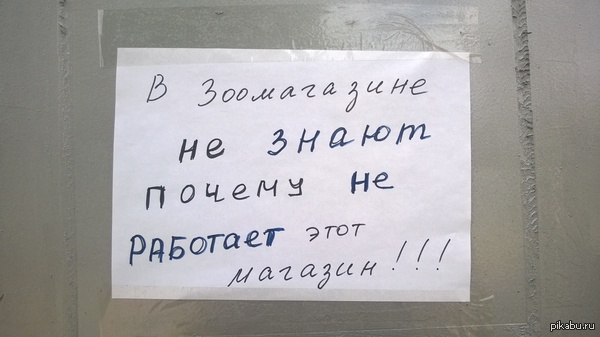 В Зоомагазине
не знают
почему не
РАБОТАЕТ этот
магазин!!!
pikabu.ru